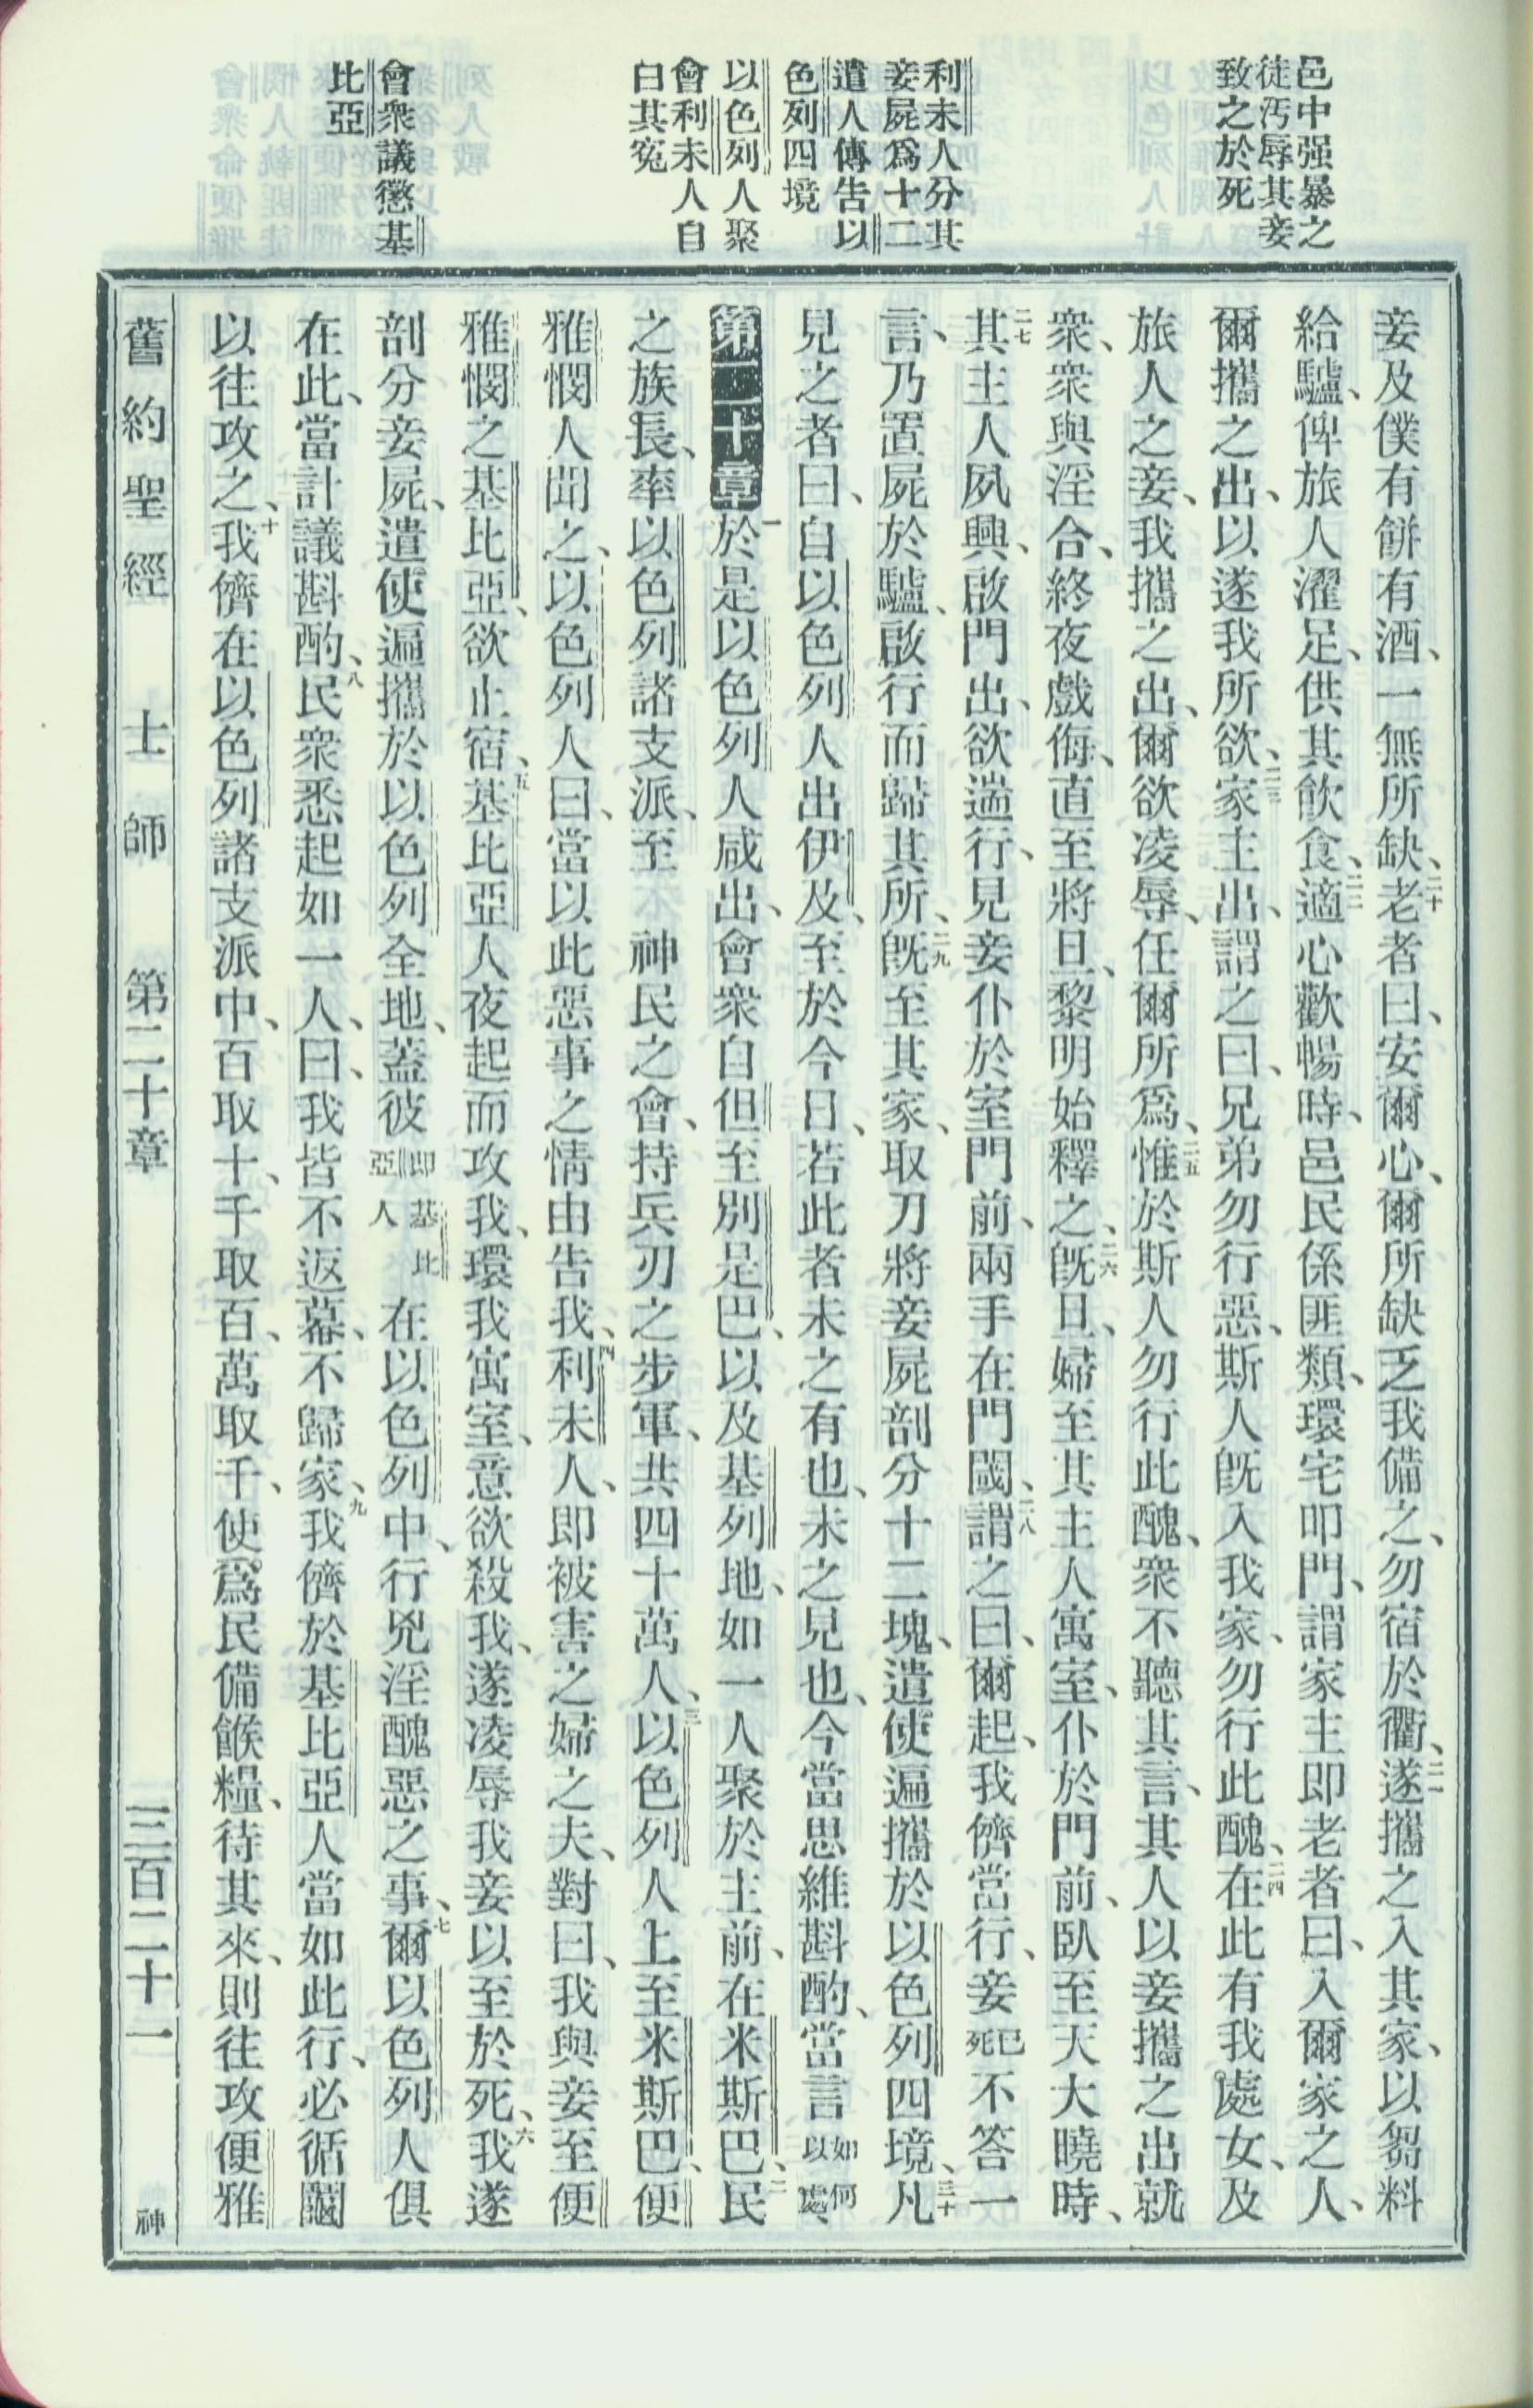 邑中强暴之
徒汚辱其妾
致之於死
利未人分其
妾屍爲十二
遣人傳告以
色列四境
以色列人聚
會利未人自
白其寃
會衆議懲基
比亞
妾及僕有餅有酒、一無所缺、二十老者曰、安爾心、爾所缺乏我備之、勿宿於衢、二一遂攜之入其家、以芻料
給驢、俾旅人濯足、供其飲食、二二適心歡暢時、邑民係匪類、環宅叩門、謂家主即老者曰、入爾家之人、
爾攜之出、以遂我所欲、二三家主出、謂之曰、兄弟勿行惡、斯人旣入我家、勿行此醜、二四在此有我處女、及
旅人之妾、我攜之出、爾欲凌辱、任爾所爲、惟二五於斯人勿行此醜、衆不聽其言、其人以妾攜之出就
衆、衆與淫合、終夜戲侮、直至將旦、黎明始釋之、二六旣旦、婦至其主人寓室、仆於門前、臥至天大曉時、
二七其主人夙興、啟門出、欲遄行、見妾仆於室門前、兩手在門閾、二八謂之曰、爾起、我儕當行、妾已死不答一
言、乃置屍於驢、啟行而歸其所、二九旣至其家、取刀將妾屍剖分十二塊、遣使遍攜於以色列四境、三十凡
見之者曰、自以色列人出伊及、至於今日、若此者未之有也、未之見也、今當思維斟酌、當言如何以處
第二十章 一於是以色列人咸出、會衆自但至別是巴、以及基列地、如一人聚於主前、在米斯巴、二民
之族長、率以色列諸支派、至 神民之會、持兵刃之步軍、共四十萬人、三以色列人上至米斯巴、便
雅憫人聞之、以色列人曰、當以此惡事之情由告我、四利未人、即被害之婦之夫、對曰、我與妾至便
雅憫之基比亞、欲止宿、五基比亞人夜起而攻我、環我寓室、意欲殺我、遂凌辱我妾以至於死、六我遂
剖分妾屍、遣使遍攜於以色列全地、蓋彼即基比亞人在以色列中、行兇淫醜惡之事、七爾以色列人俱
在此、當計議斟酌、八民衆悉起如一人、曰、我皆不返幕、不歸家、九我儕於基比亞人當如此行、必循鬮
以往攻之、十我儕在以色列諸支派中、百取十、千取百、萬取千、使爲民備餱糧、待其來、則往攻便雅
舊約聖經 士師 第二十章 三百二十一 神